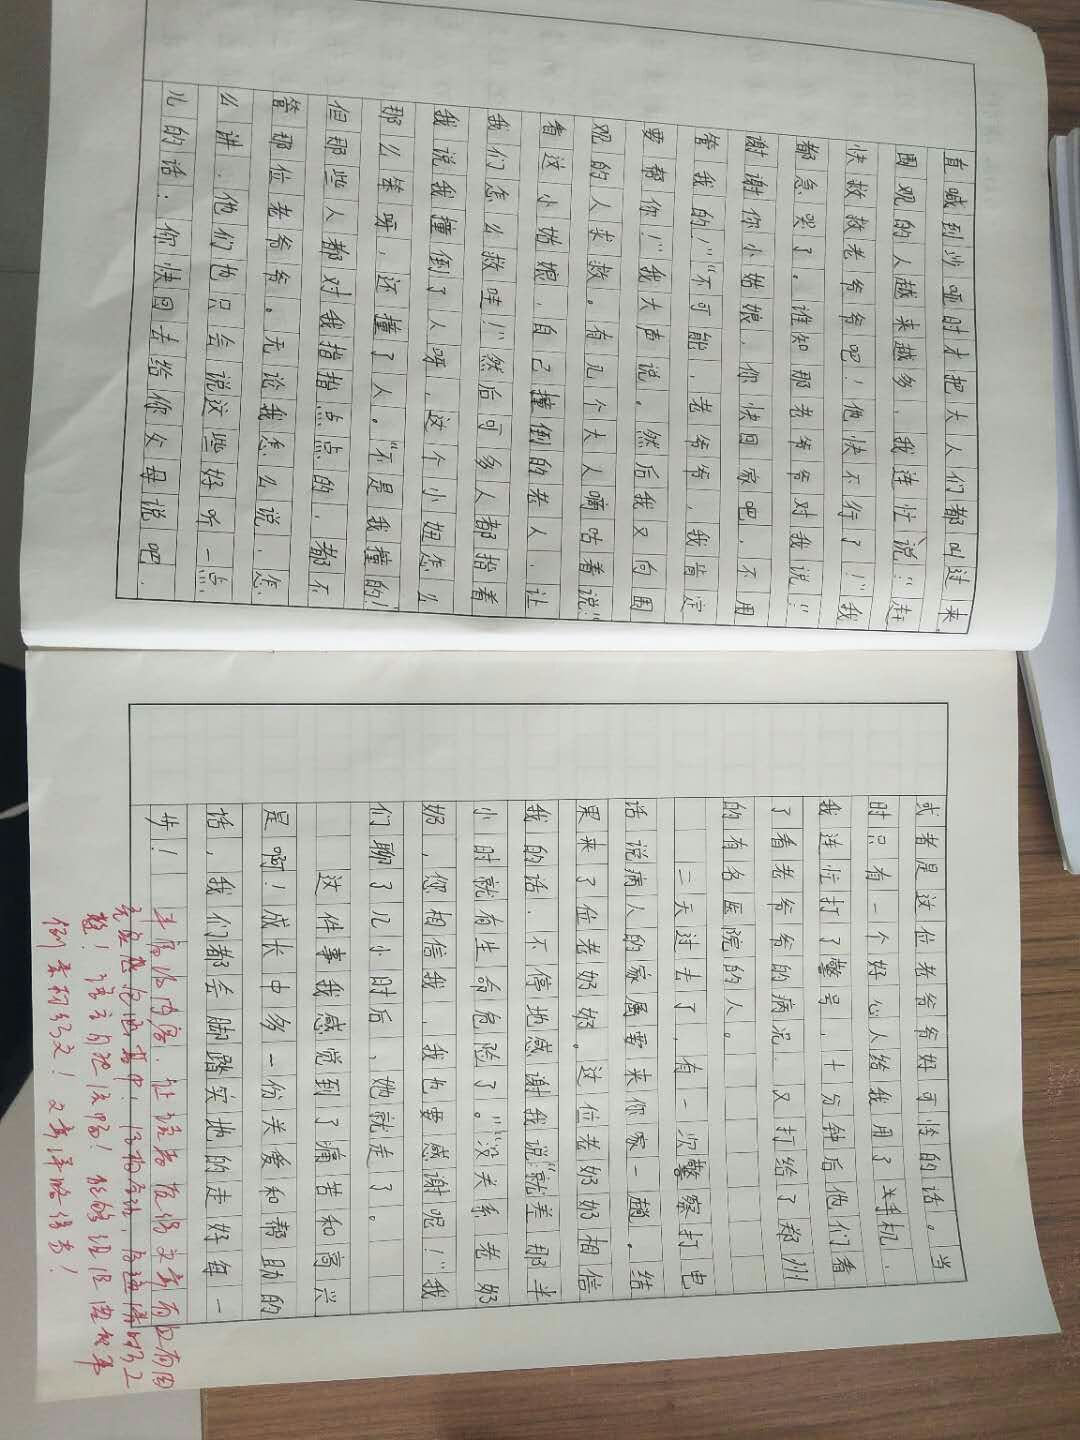 直喊到沙哑时才把大人们都叫过来.
围观的人越来越多、我连忙说:“赶
快救救老爷爷吧！他快不行了！”我
都急哭了。谁知那老爷爷对我说:“
谢谢你小姑娘，你快回家吧，不用
管我的！”“不可能、老爷爷，我肯定
要帮你！”我大声说。然后我又向围
观的人求救。有几个大人嘀咕着说:“
看这小姑娘、自己撞倒的老人、让
我们怎么救哇！”然后可多人都指着
我说我撞倒了人呀，这个小妞怎么
那么笨呀，还撞了人。“不是我撞的！”
但那些人都对我指指点点的，都不
管那位老爷爷。无论我怎么说、怎
么讲、他们也只会说这些好听一点
儿的话：你快回去给你父母说吧.
或者是这位老爷爷好可怜的话。当
时只有一个好心人给我用了手机.
我连忙打了警号，十分钟后他们看
了看老爷爷的病况.又打给了郑州
的有名医院的人。
三天过去了，有一次警察打电
话说病人的家属要来你家一趟。结
果来了位老奶奶。这位老奶奶相信
我的话.不停地感谢我说“就差那半
小时就有生命危险了。”“没关系老奶
奶，您相信我、我也要感谢呢！”我
们聊了几小时后、她就走了。
这件事我感觉到了痛苦和高兴
是啊！成长中多一份关爱和帮助的
话，我们都会脚踏实地的走好每一
步！
丰富的内容.让读者在得文章而又有回
结构完整,
整！语言自然流畅！
例素和父！文章详略得当！